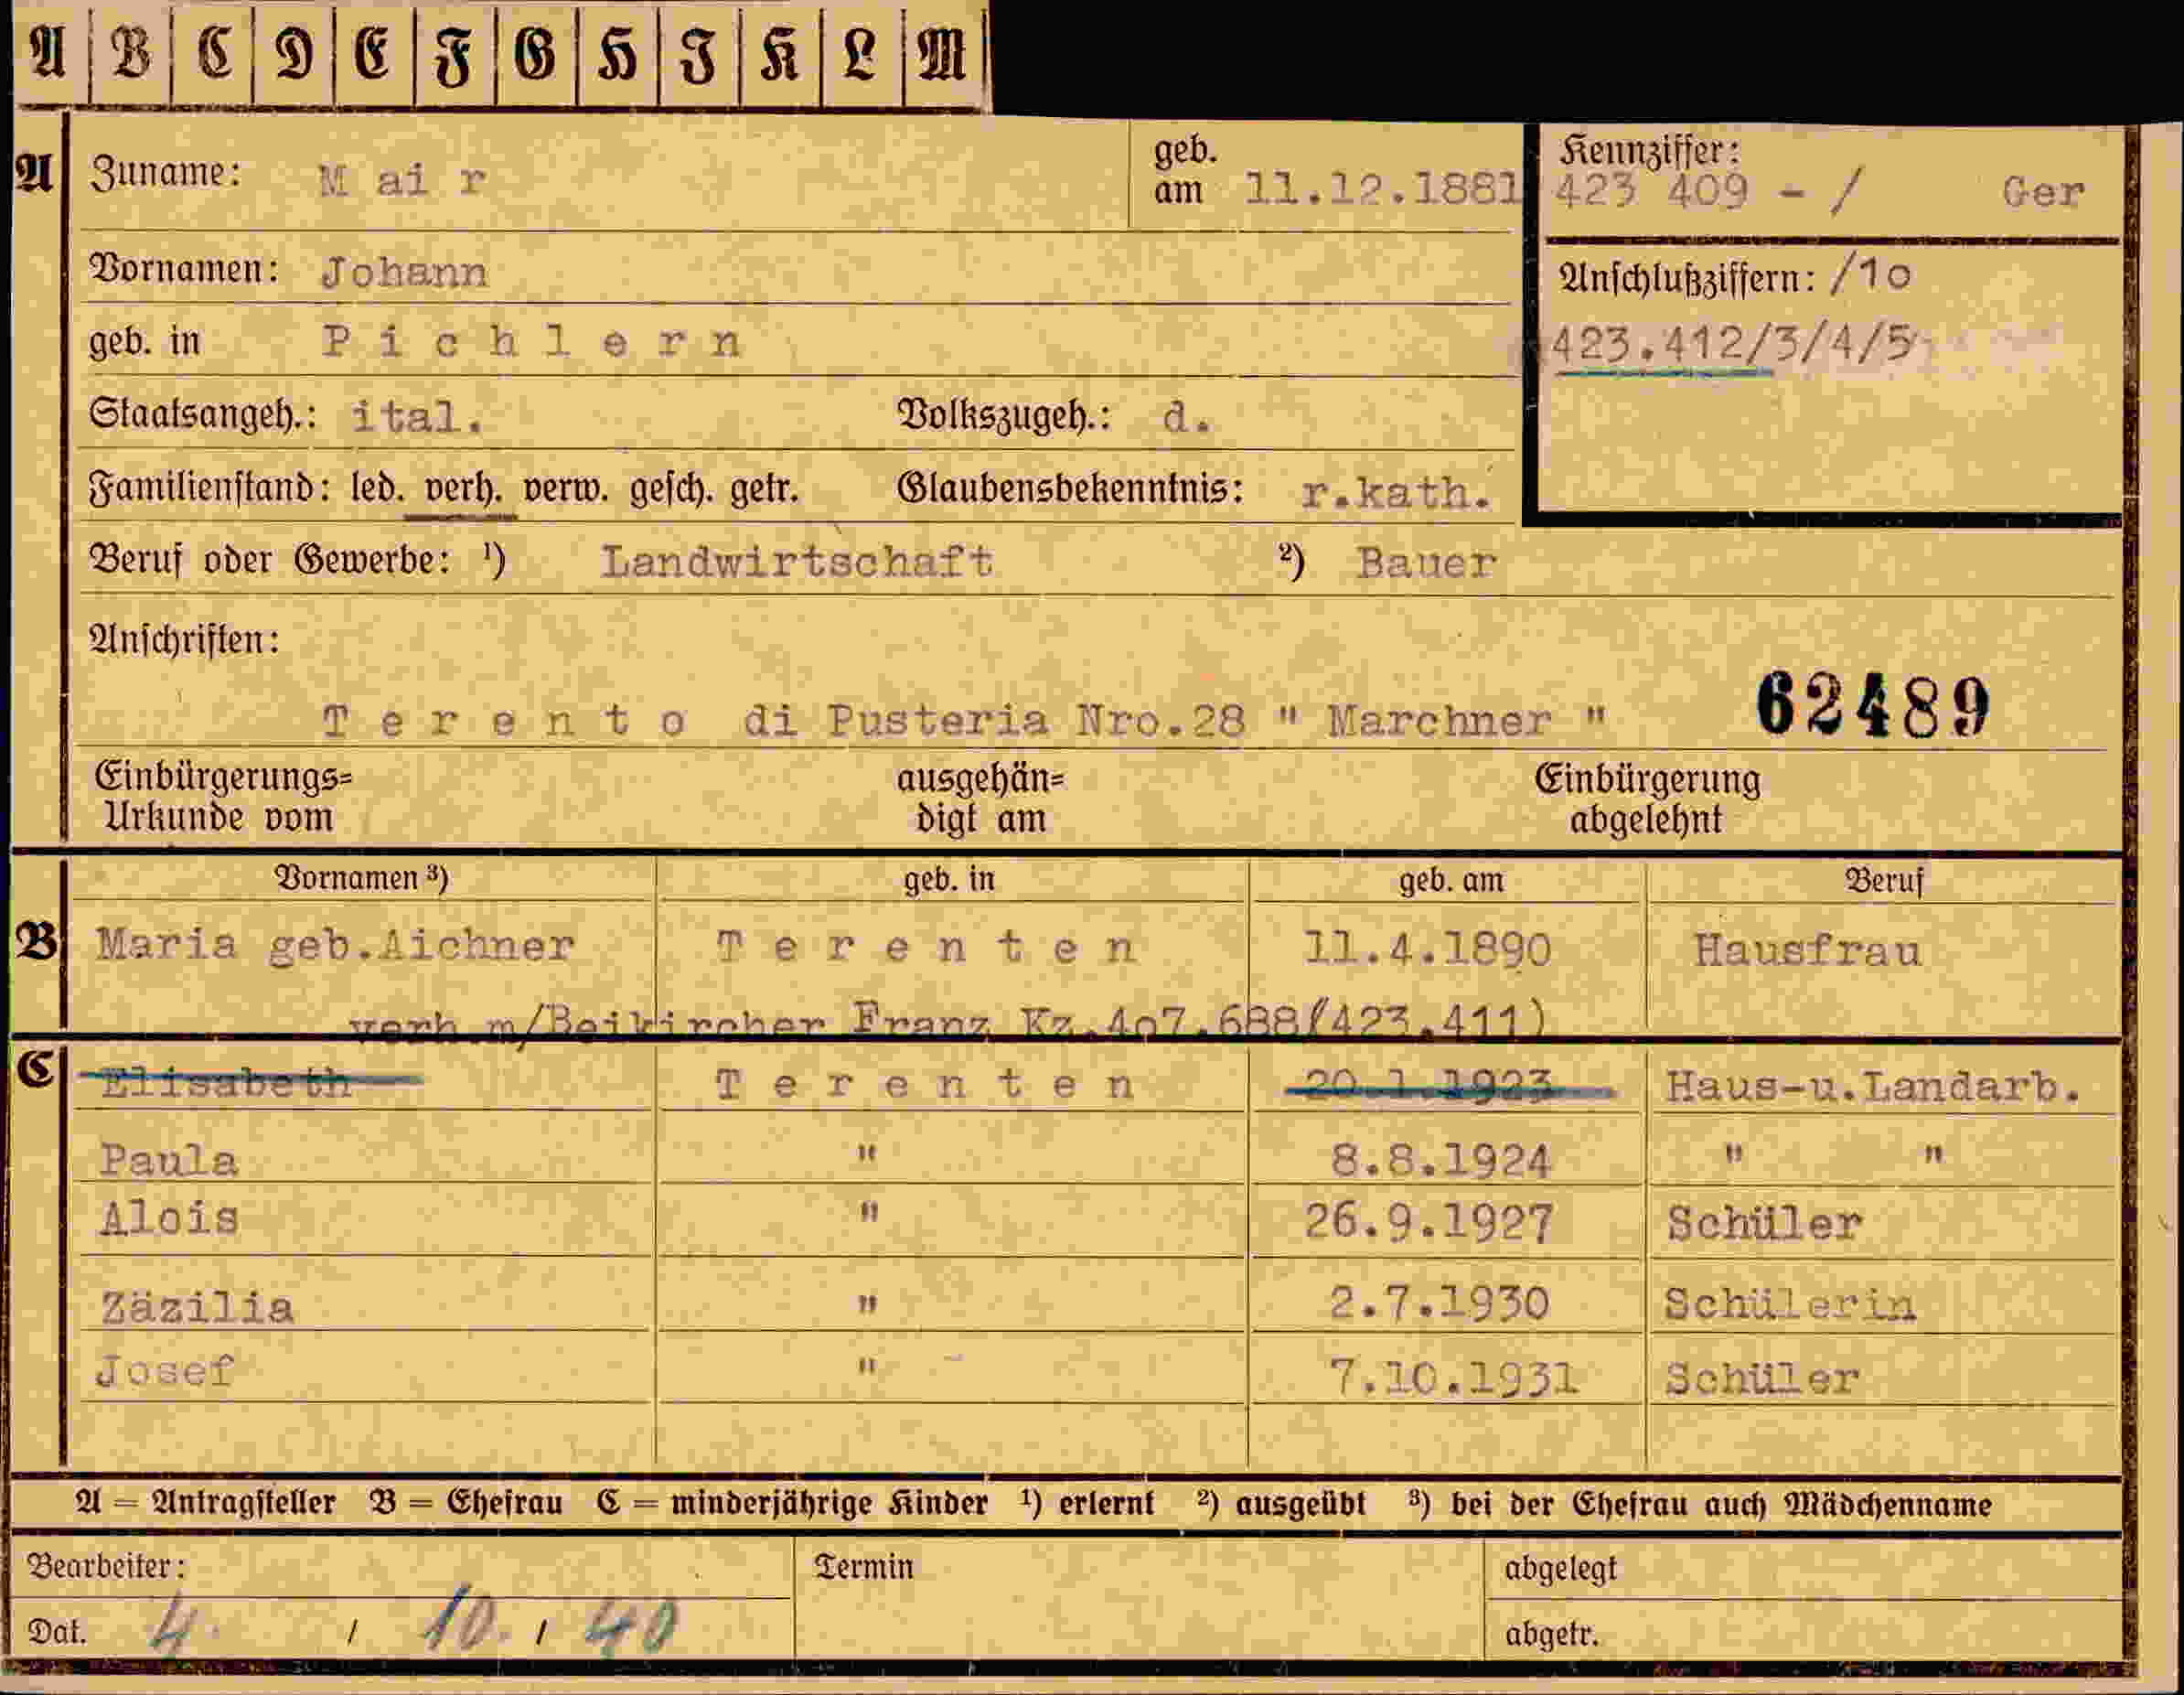 A B C D E F G H I K L M
A Zuname: M ai r geb. am 11.12.1881
Kennziffer: 423 409 - / Ger
Vornamen: Johann
Anschlußziffern: /10
geb. in P i c h l e r n
423.412/3/4/5
Staatsangeh.: ital. Volkszugeh.: d.
Familienstand: led. verh. verw. gesch. getr. Glaubensbekenntnis: r.kath.
Beruf oder Gewerbe: ¹) Landwirtschaft ²) Bauer
Anschriften:
T e r e n t o di Pusteria Nro.28 " Marchner " 62489
Einbürgerungs= Urkunde vom ausgehän= digt am Einbürgerung abgelehnt
Vornamen ³) geb. in geb. am Beruf
B Maria geb.Aichner T e r e n t e n 11.4.1890 Hausfrau
verh m/Beikircher Franz Kz.407.688/(423.411)
C Elisabeth T e r e n t e n 20.1.1923 Haus-u.Landarb.
Paula " 8.8.1924 " "
Alois " 26.9.1927 Schüler
Zäzilia " 2.7.1930 Schülerin
Josef " 7.10.1931 Schüler
A = Antragsteller B = Ehefrau C = minderjährige Kinder ¹) erlernt ²) ausgeübt ³) bei der Ehefrau auch Mädchenname
Bearbeiter: Termin abgelegt
Dat. 4. / 10. / 40 abgetr.